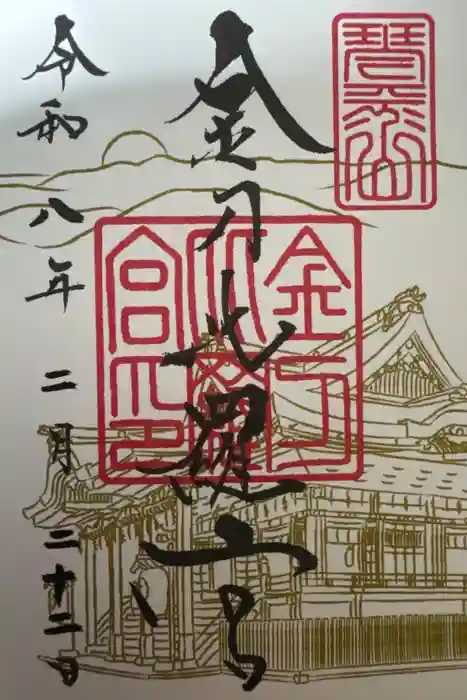 琴平山
金刀比羅宮
金刀
比羅
宮印
令和八年二月二十二日